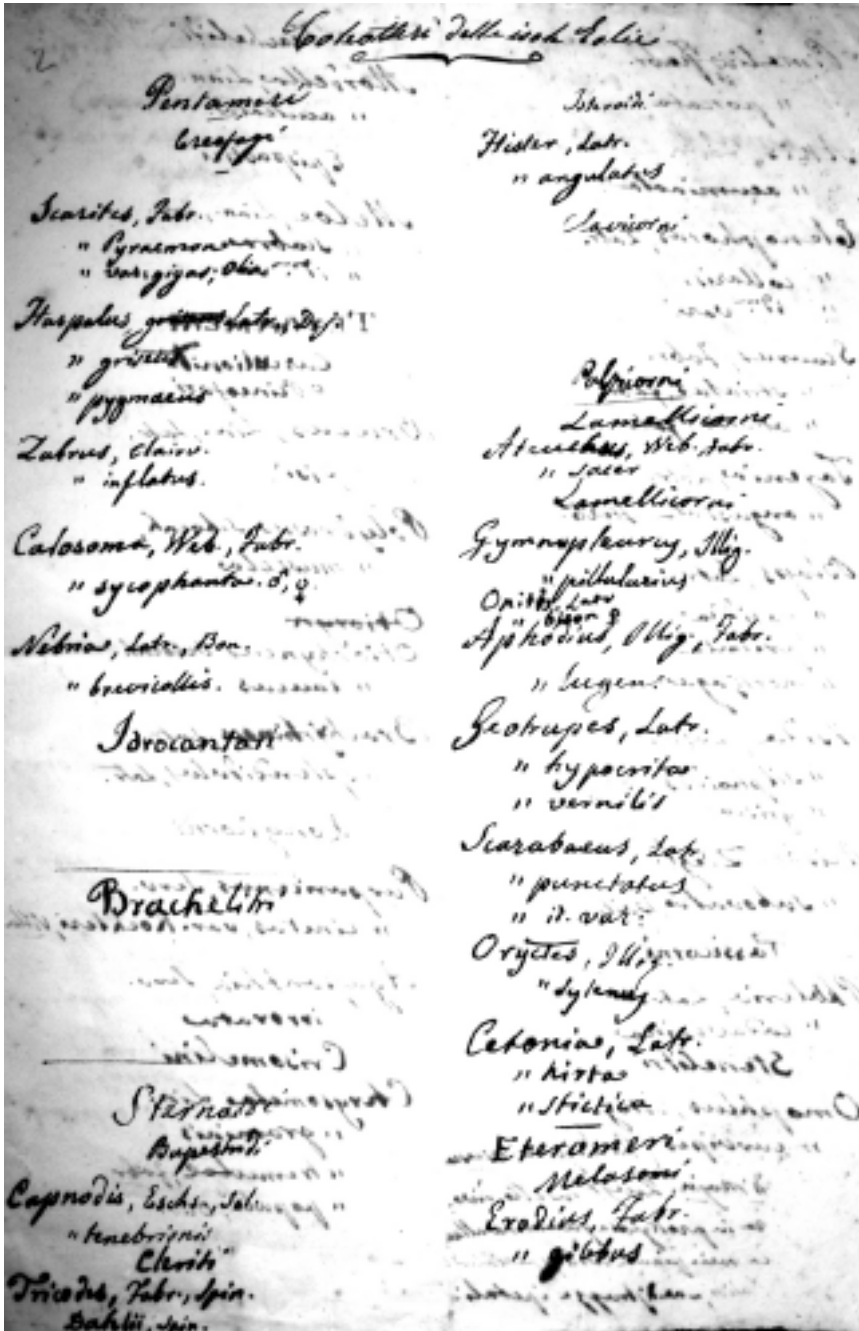 Coleotteri delle isole Eolie
Pentameri
Creofagi
Scarites, Fabr.
" Pyracmon
" var. gigas, Oliv.
Harpalus, Latr., Dej.
" griseus
" pygmaeus
Zabrus, Clairv.
" inflatus.
Calosoma, Web., Fabr.
" sycophanta. ♂, ♀
Nebria, Latr., Bon.
" brevicollis.
Idrocantari
Brachelitri
Sternossi
Buprestidi
Capnodis, Esch., Sol.
" tenebrionis
Cleriti
Tricodes, Fabr., Spin.
Dahlii, Spin.
Isteroidi
Hister, Latr.
" angulatus
Clavicorni
Palpicorni
Lamellicorni
Ateuchus, Web. Fabr.
" sacer
Lamellicorni
Gymnopleurus, Illig.
" pillularius
Onitis, Latr
" bison ♀
Aphodius, Illig., Fabr.
" lugens.
Geotrupes, Latr.
" hypocrita
" vernilis
Scarabaeus, Latr.
" punctatus
" it. var.
Oryctes, Illig.
" Sylenus
Cetonia, Latr.
" hirta
" stictica
Eterameri
Melasomi
Erodius, Fabr.
" gibbus